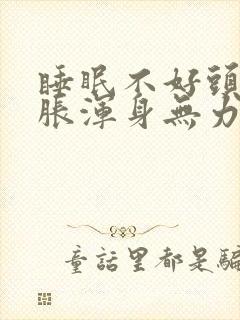 睡眠不好頭
脹渾身無力
童話里都是騙